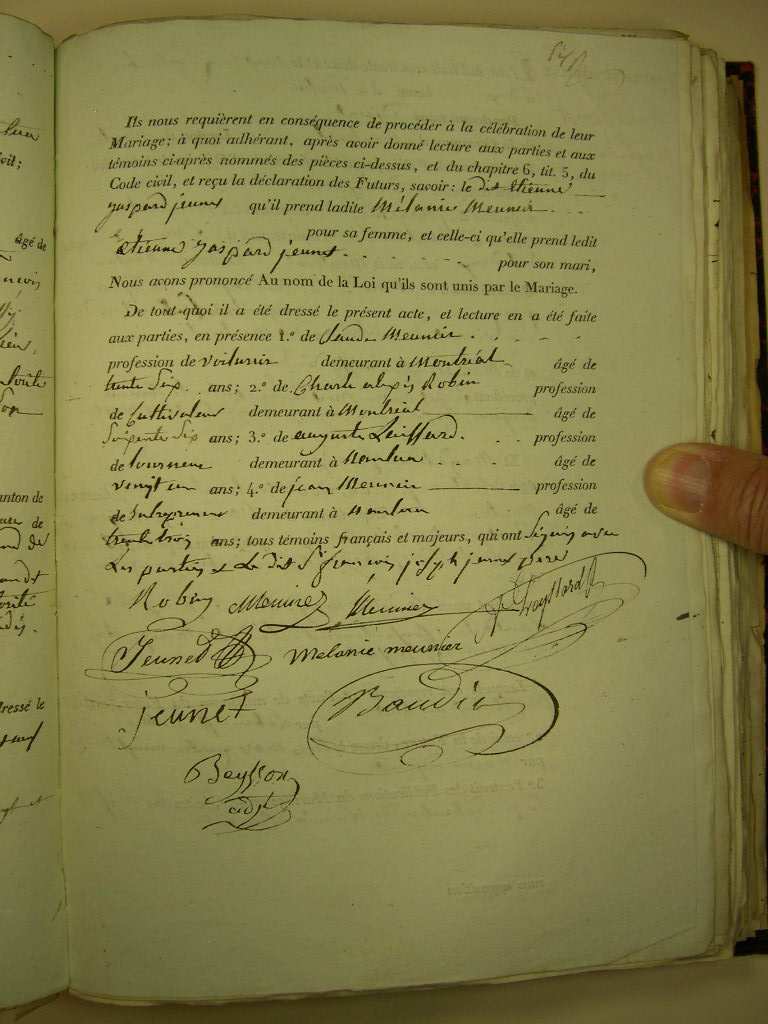 Ils nous requièrent en conséquence de procéder à la célébration de leur
Mariage; à quoi adhérant, après avoir donné lecture aux parties et aux
témoins ci-après nommés des pièces ci-dessus, et du chapitre 6, tit. 5, du
Code civil, et reçu la déclaration des Futurs, savoir: le dit Etienne
gaspard jeunet qu'il prend ladite Mélanie Meunier
pour sa femme, et celle-ci qu'elle prend ledit
etienne gaspard jeunet pour son mari,
Nous avons prononcé Au nom de la Loi qu'ils sont unis par le Mariage.
De tout quoi il a été dressé le présent acte, et lecture en a été faite
aux parties, en présence 1.º de Claude Meunier
profession de voiturier demeurant à Montréal âgé de
trente Six ans; 2.º de Charle alexis Robin profession
de Cultivateur demeurant à Montréal âgé de
Soixante Six ans; 3.º de auguste profession
de tourneur demeurant à Nantua âgé de
vingt un ans; 4.º de jean Meunier profession
de Entrepreneur demeurant à Nantua âgé de
trente trois ans; tous témoins français et majeurs, qui ont Signés avec
Les parties et Le dit S. francois joseph jeunet pere
Robin Meunier Meunier
Jeunet melanie meunier
jeunet Baudin
Beysson
adjt
âgé de
anton de
de
ressé le